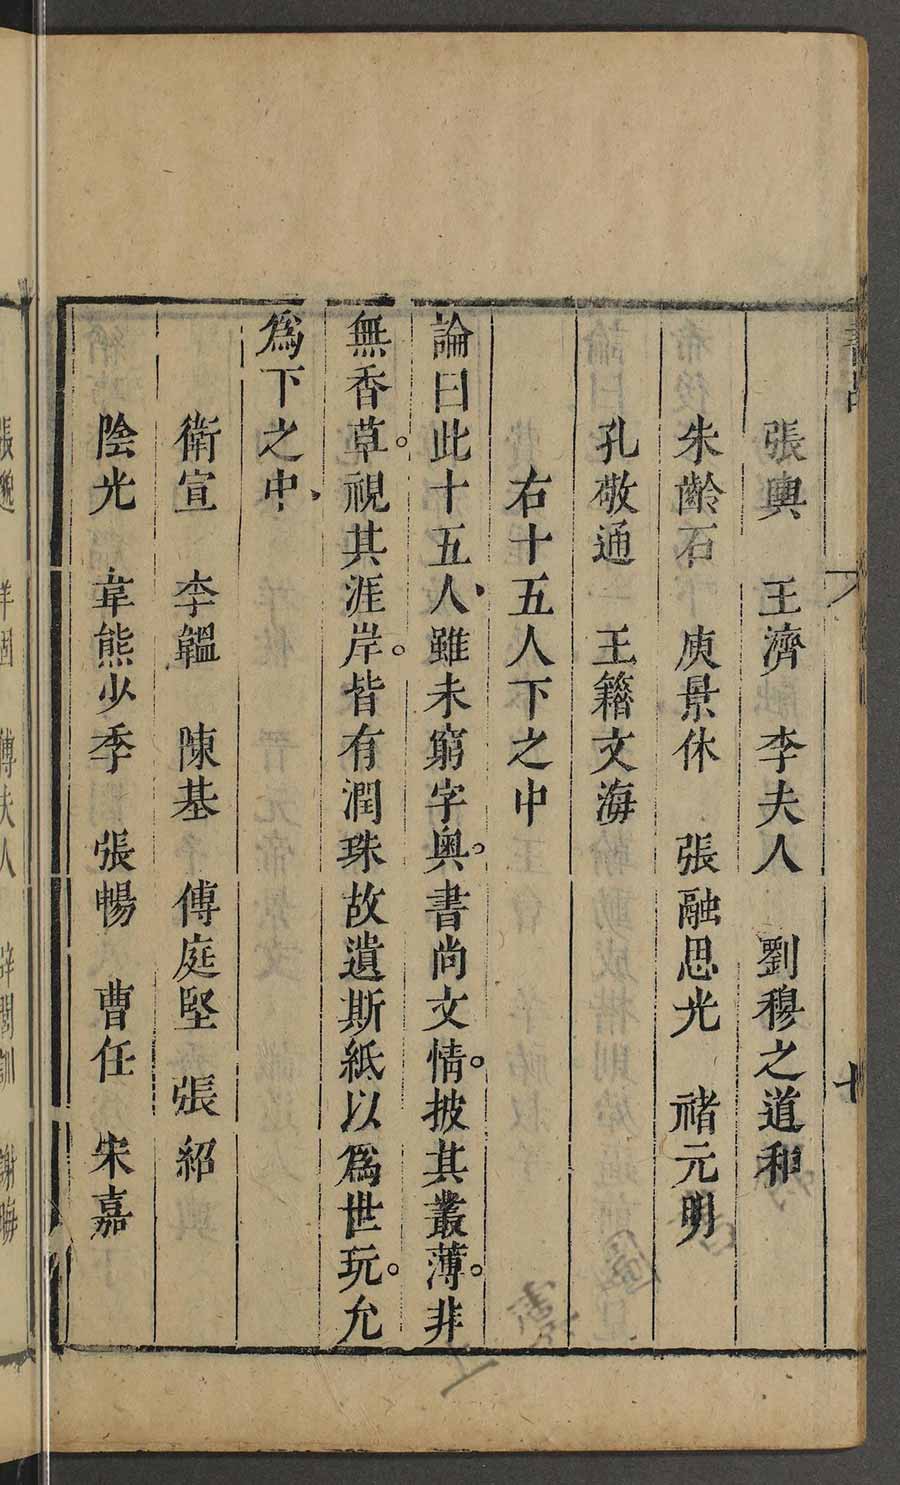 書品 七
張輿 王濟 李夫人 劉穆之道和
朱齡石 庾景休 張融思光 禇元明
孔敬通 王籍文海
右十五人下之中
論曰此十五人、雖未窮字奧。書尚文情。披其叢薄。非
無香草。視其涯岸。皆有潤珠故遺斯紙以爲世玩。允
爲下之中、
衛宣 李韞 陳基 傅庭堅 張紹
陰光 韋熊少季 張暢 曹任 宋嘉
羊固 傅夫人 辟閭訓 謝晦